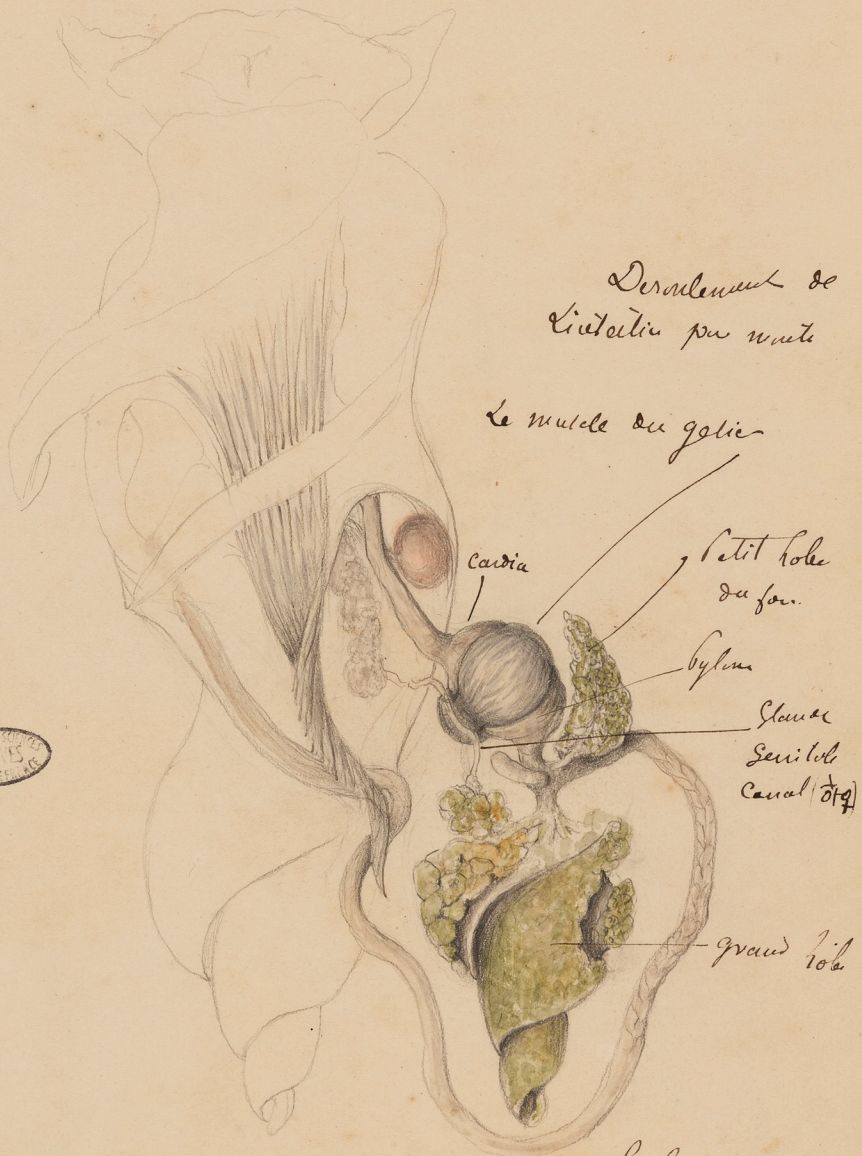 Deroulement de
L'intestin par
Le muscle du gesier
Cardia
Petit lobe
du foie
Pylore
Glande
Genitale
Canal
grand lobe